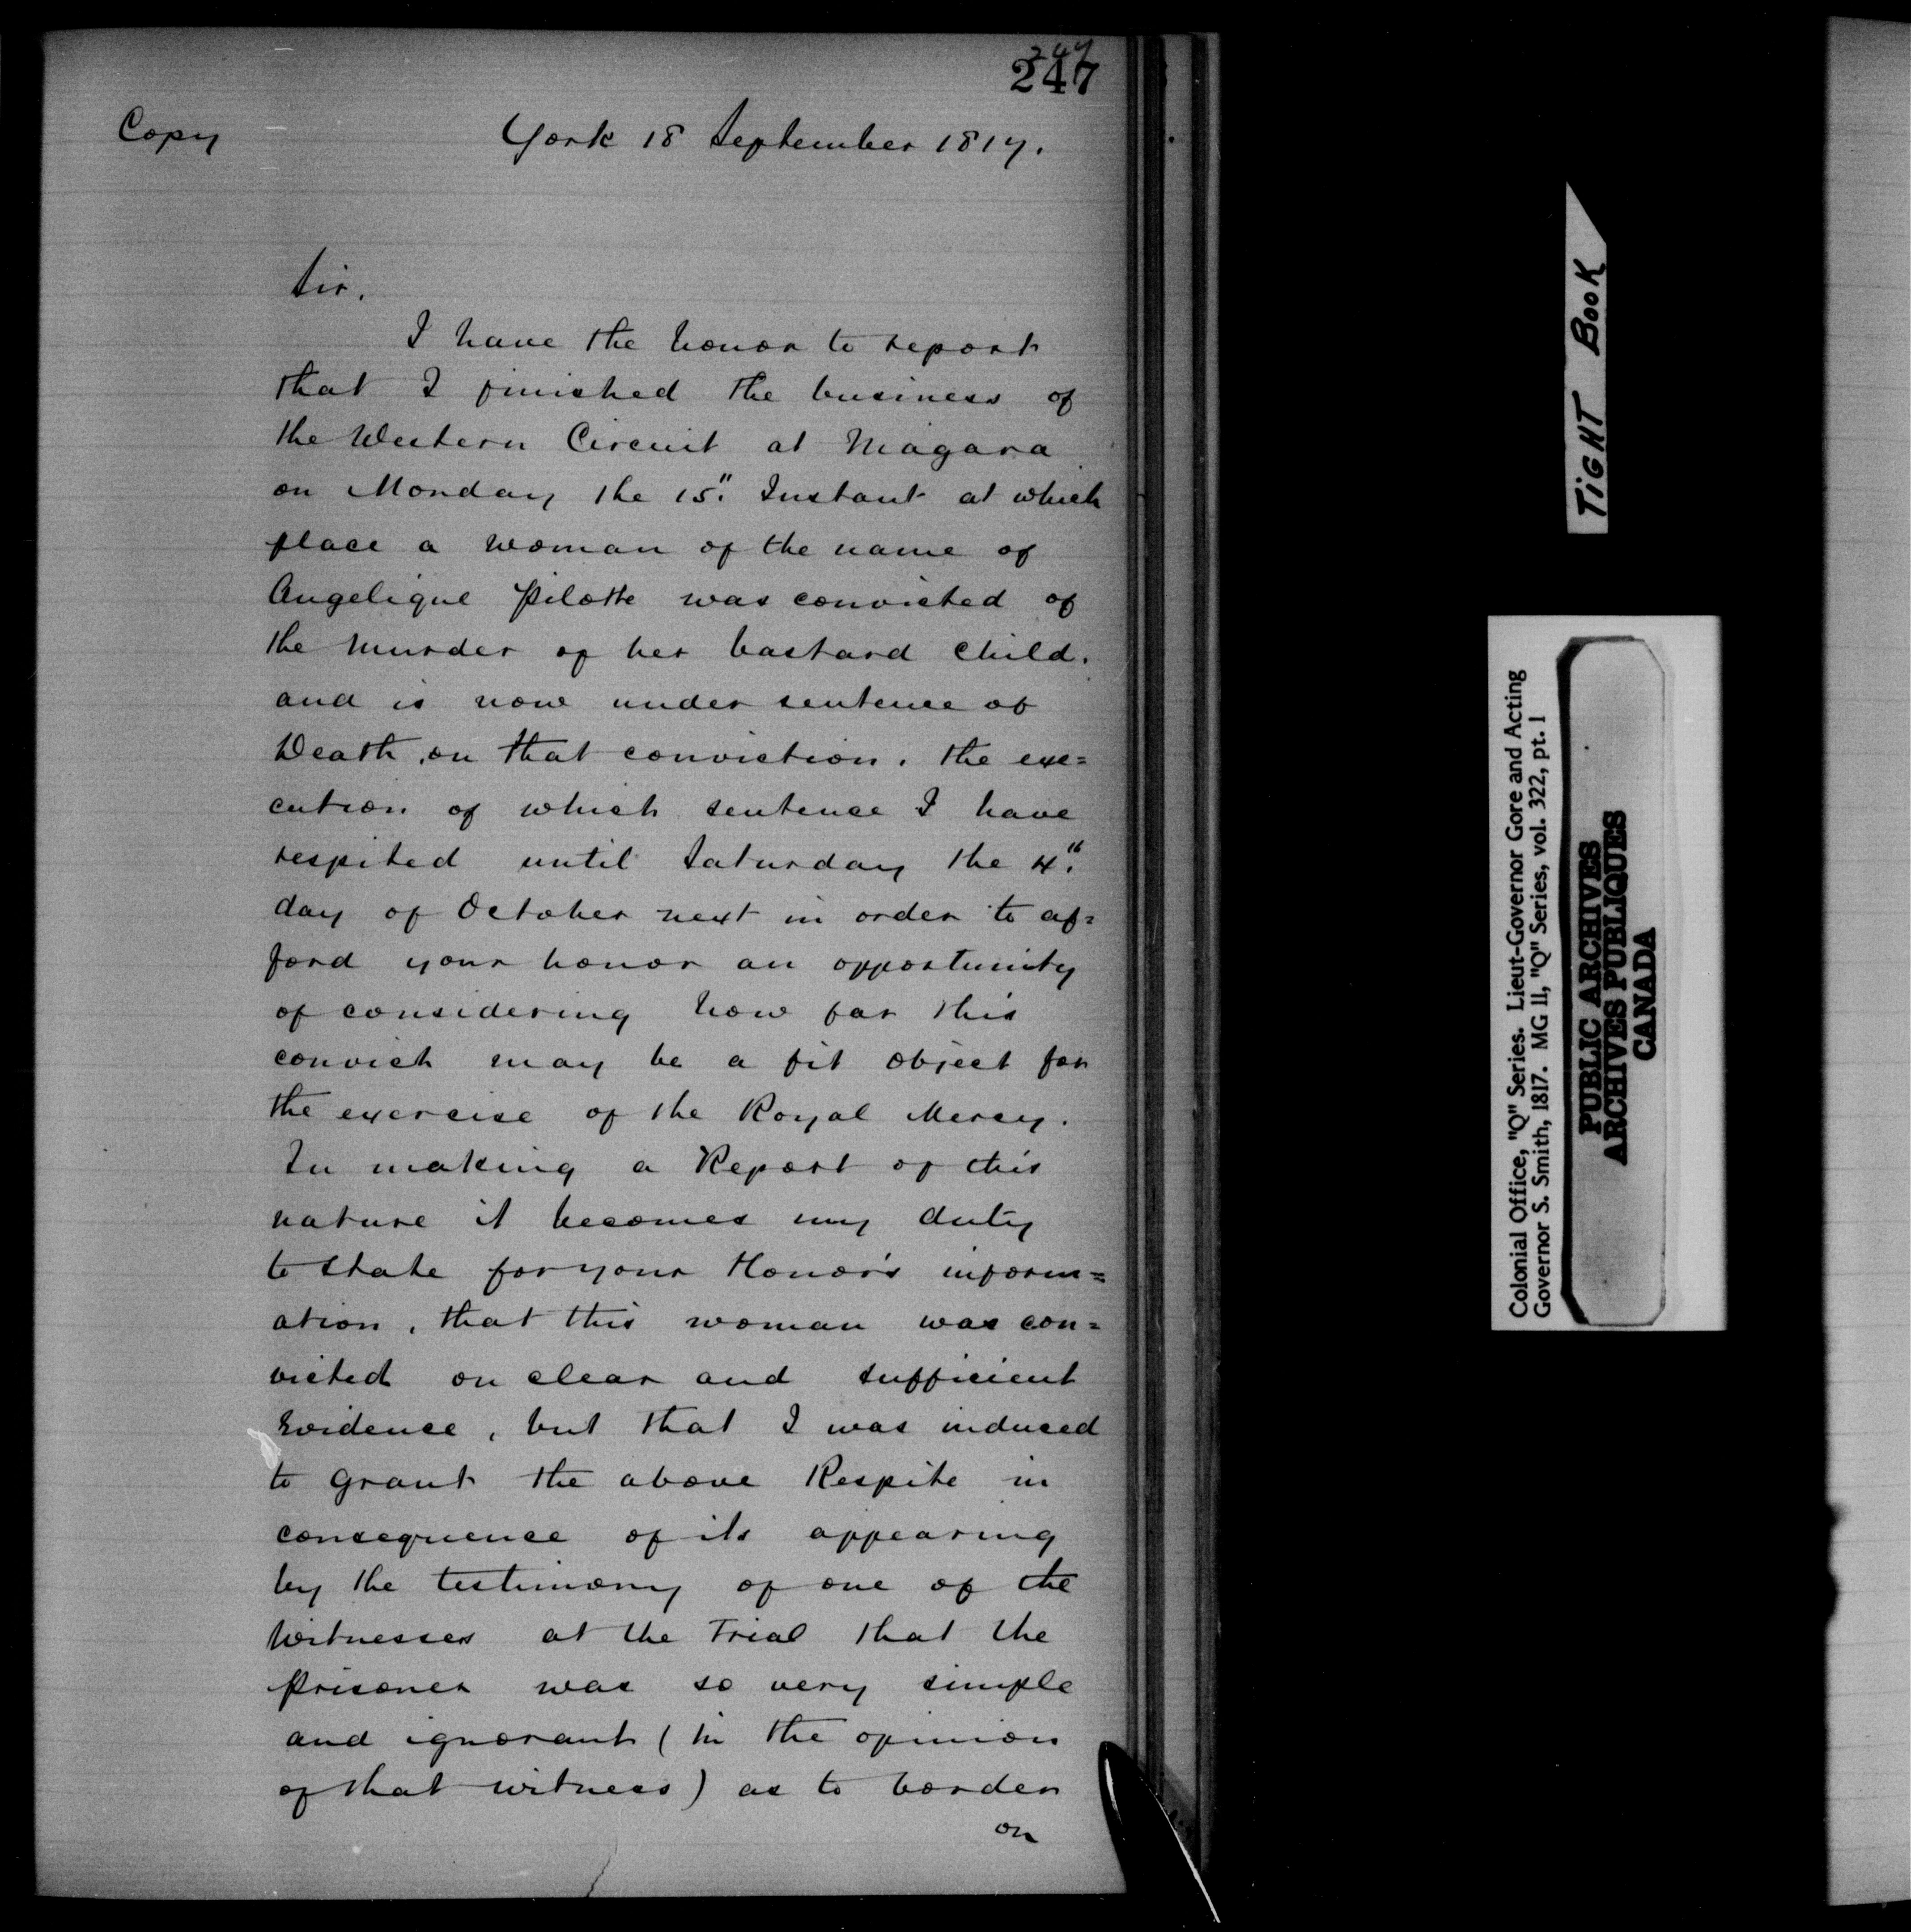 247
247
Copy
York 18 September 1817.
Sir.
I have the honor to report
that I finished the business of
the Western Circuit at Niagara
on Monday the 15". Instant at which
place a woman of the name of
Angelique Pilotte was convicted of
the Murder of her bastard Child.
and is now under sentence of
Death, on that conviction. the exe=
cution of which sentence I have
respited until Saturday the 4".
day of October next in order to af=
ford your honor an opportunity
of considering how far this
convict may be a fit object for
the exercise of the Royal Mercy.
In making a Report of this
nature it becomes my duty
to state for your Honor's inform=
ation, that this woman was con=
victed on clear and sufficient
Evidence, but that I was induced
to grant the above Respite in
consequence of its appearing
by the testimony of one of the
Witnesses at the Trial that the
Prisoner was so very simple
and ignorant (in the opinion
of that witness) as to border
on
TIGHT BOOK
Colonial Office, "Q" Series. Lieut-Governor Gore and Acting
Governor S. Smith, 1817. MG 11, "Q" Series, vol. 322, pt. 1
PUBLIC ARCHIVES
ARCHIVES PUBLIQUES
CANADA